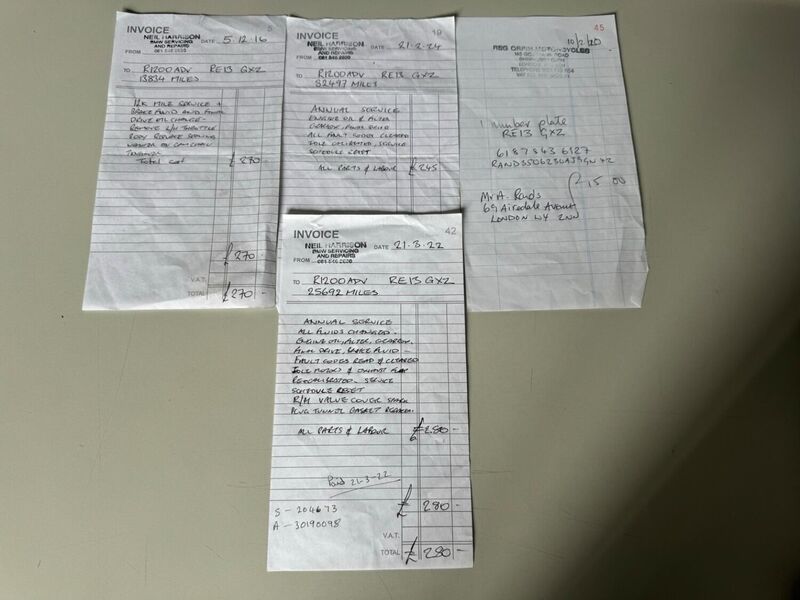 INVOICE
5
NEIL HARRISON
BMW SERVICING
AND REPAIRS
DATE 5.12.16
FROM
TO R1200ADV RE13 GXZ
13834 MILES
12K MILE SERVICE +
BRAKE FLUID AND FINAL
DRIVE OIL CHANGE-
REMOVE R/H THROTTLE
BODY REPLACE SEALING
WASHER ON CAMCHAIN
TENSIONER
Total cost £270-
£270
V.A.T.
TOTAL £270-
INVOICE
19
NEIL HARRISON
BMW SERVICING
AND REPAIRS
DATE 21-2-24
FROM
TO R1200ADV RE13 GXZ
MILES
ANNUAL SERVICE
ENGINE OIL & FILTER
GEARBOX, FINAL DRIVE
ALL FAULT CODES CLEARED
IDLE CALIBRATED, SERVICE
SCHEDULE RESET
ALL PARTS & LABOUR £245
45
10/2/20
REG ORRIN MOTORCYCLES
1 number plate
RE13 GXZ
6187843 6127
Mr A. Rands
£15 00
69 Airedale Avenue
LONDON W4 2NN
INVOICE
42
NEIL HARRISON
BMW SERVICING
AND REPAIRS
DATE 21.3.22
FROM
TO R1200ADV RE13 GXZ
25692 MILES
ANNUAL SERVICE
ALL FLUIDS CHANGED.
ENGINE OIL, FILTER, GEARBOX,
FINAL DRIVE, BRAKE FLUID -
FAULT CODES READ & CLEARED
IDLE MOTORS & EXHAUST FLAP
RECALIBRATED. SERVICE
SCHEDULE RESET
R/H VALVE COVER SPARK
PLUG TUNNEL GASKET REPLACED.
ALL PARTS & LABOUR £280-
Paid 21-3-22
S - 204673
£ 280-
A - 30190098
V.A.T.
TOTAL £ 280-